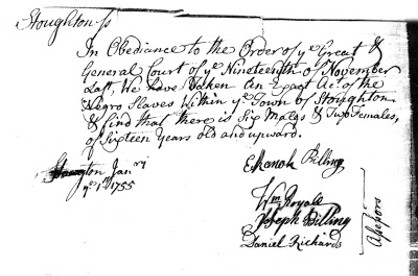 Stoughton ss
In Obediance to the Order of ye Great &
General Court of ye Nineteenth of November
Last, We have Taken An Exact Act. of the
Negro Slaves Within ye Town of Stoughton
& find that there is Six Males & Two Females,
of Sixteen Years old and upward.
Stoughton Janry
ye 1st 1755
Elkanah Billing
Wm Royall
Joseph Billing
Daniel Richards
Assessors